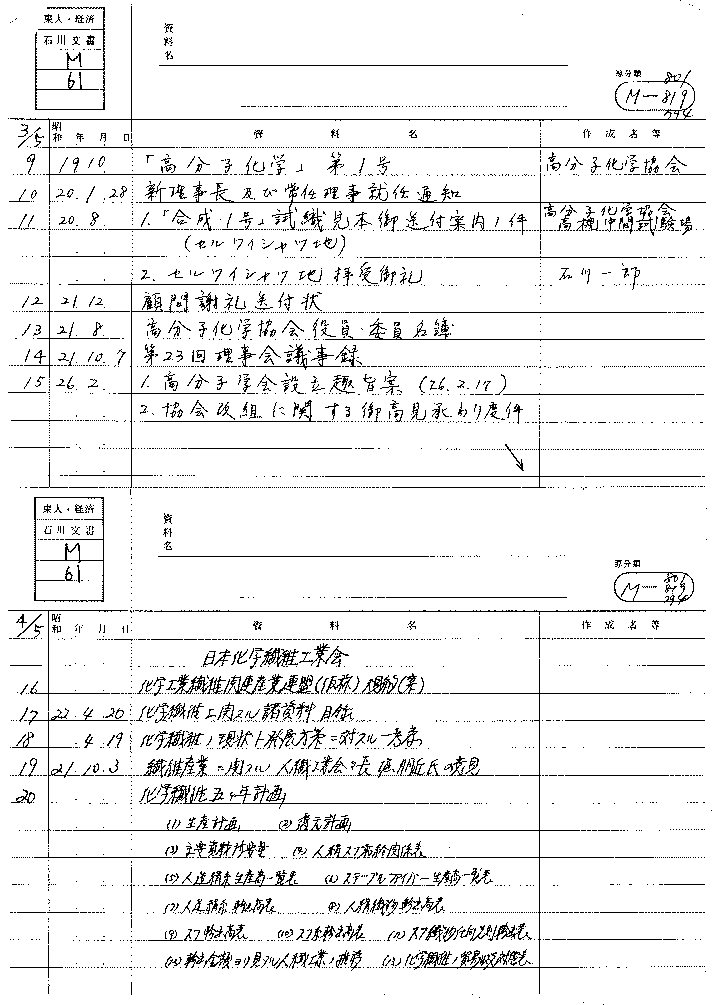 東大・経済
石川文書
M
61
資料名
原分類
801
M－819
794
3/5 昭和 年 月 日 資 料 名 作成名等
9 19 10 「高分子化学」第1号 高分子化学協会
10 20.1.28 新理事長及び常任理事就任通知
11 20.8 1.「合成1号」試織見本御送付案内1件 高分子化学協会
(セルワイシャツ地) 高槻中間試験場
2. セルワイシャツ地拝受御礼 石川一郎
12 21.12 顧問謝礼送付状
13 21.8 高分子化学協会役員・委員名簿
14 21.10.7 第23回理事会議事録
15 26.2 1. 高分子学会設立趣旨案 (26.2.17)
2. 協会改組に関する御高見承わり度件
東大・経済
石川文書
M
61
資料名
原分類
801
M－819
794
4/5 昭和 年 月 日 資 料 名 作成名等
日本化学繊維工業会
16 化学工業繊維関連産業連盟(仮称)規約(案)
17 22.4.20 化学繊維ニ関スル諸資料目録
18 .4.19 化学繊維ノ現状ト所急方策ニ対スル一考察
19 21.10.3 繊維産業ニ関スル人繊工業会々長 氏の意見
20 化学繊維五ヶ年計画
(1) 生産計画 (2) 復元計画
(3) 主要資材所要量 (4) 人絹スフ需給関係表
(5) 人造絹糸生産高一覧表 (6) ステープルファイバー生産高一覧表
(7) 人造絹糸輸出高表 (8) 人絹織物輸出高表
(9) スフ輸出高表 (10) スフ糸輸出高表 (11) スフ織物仕向先別輸出表
(12) 輸出金額ヨリ見タル人繊工業ノ推移 (13) 化学繊維ノ貿易収支対照表